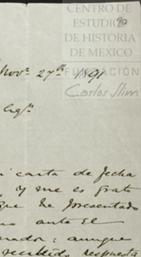 CENTRO DE
ESTUDIOS
DE HISTORIA
DE MEXICO
FUNDACIÓN
Carlos Slim
90
Novr. 27th 1891
carta de fecha
y me es grat
que de presentado
ante el
nador: aunque
recibido respuesta